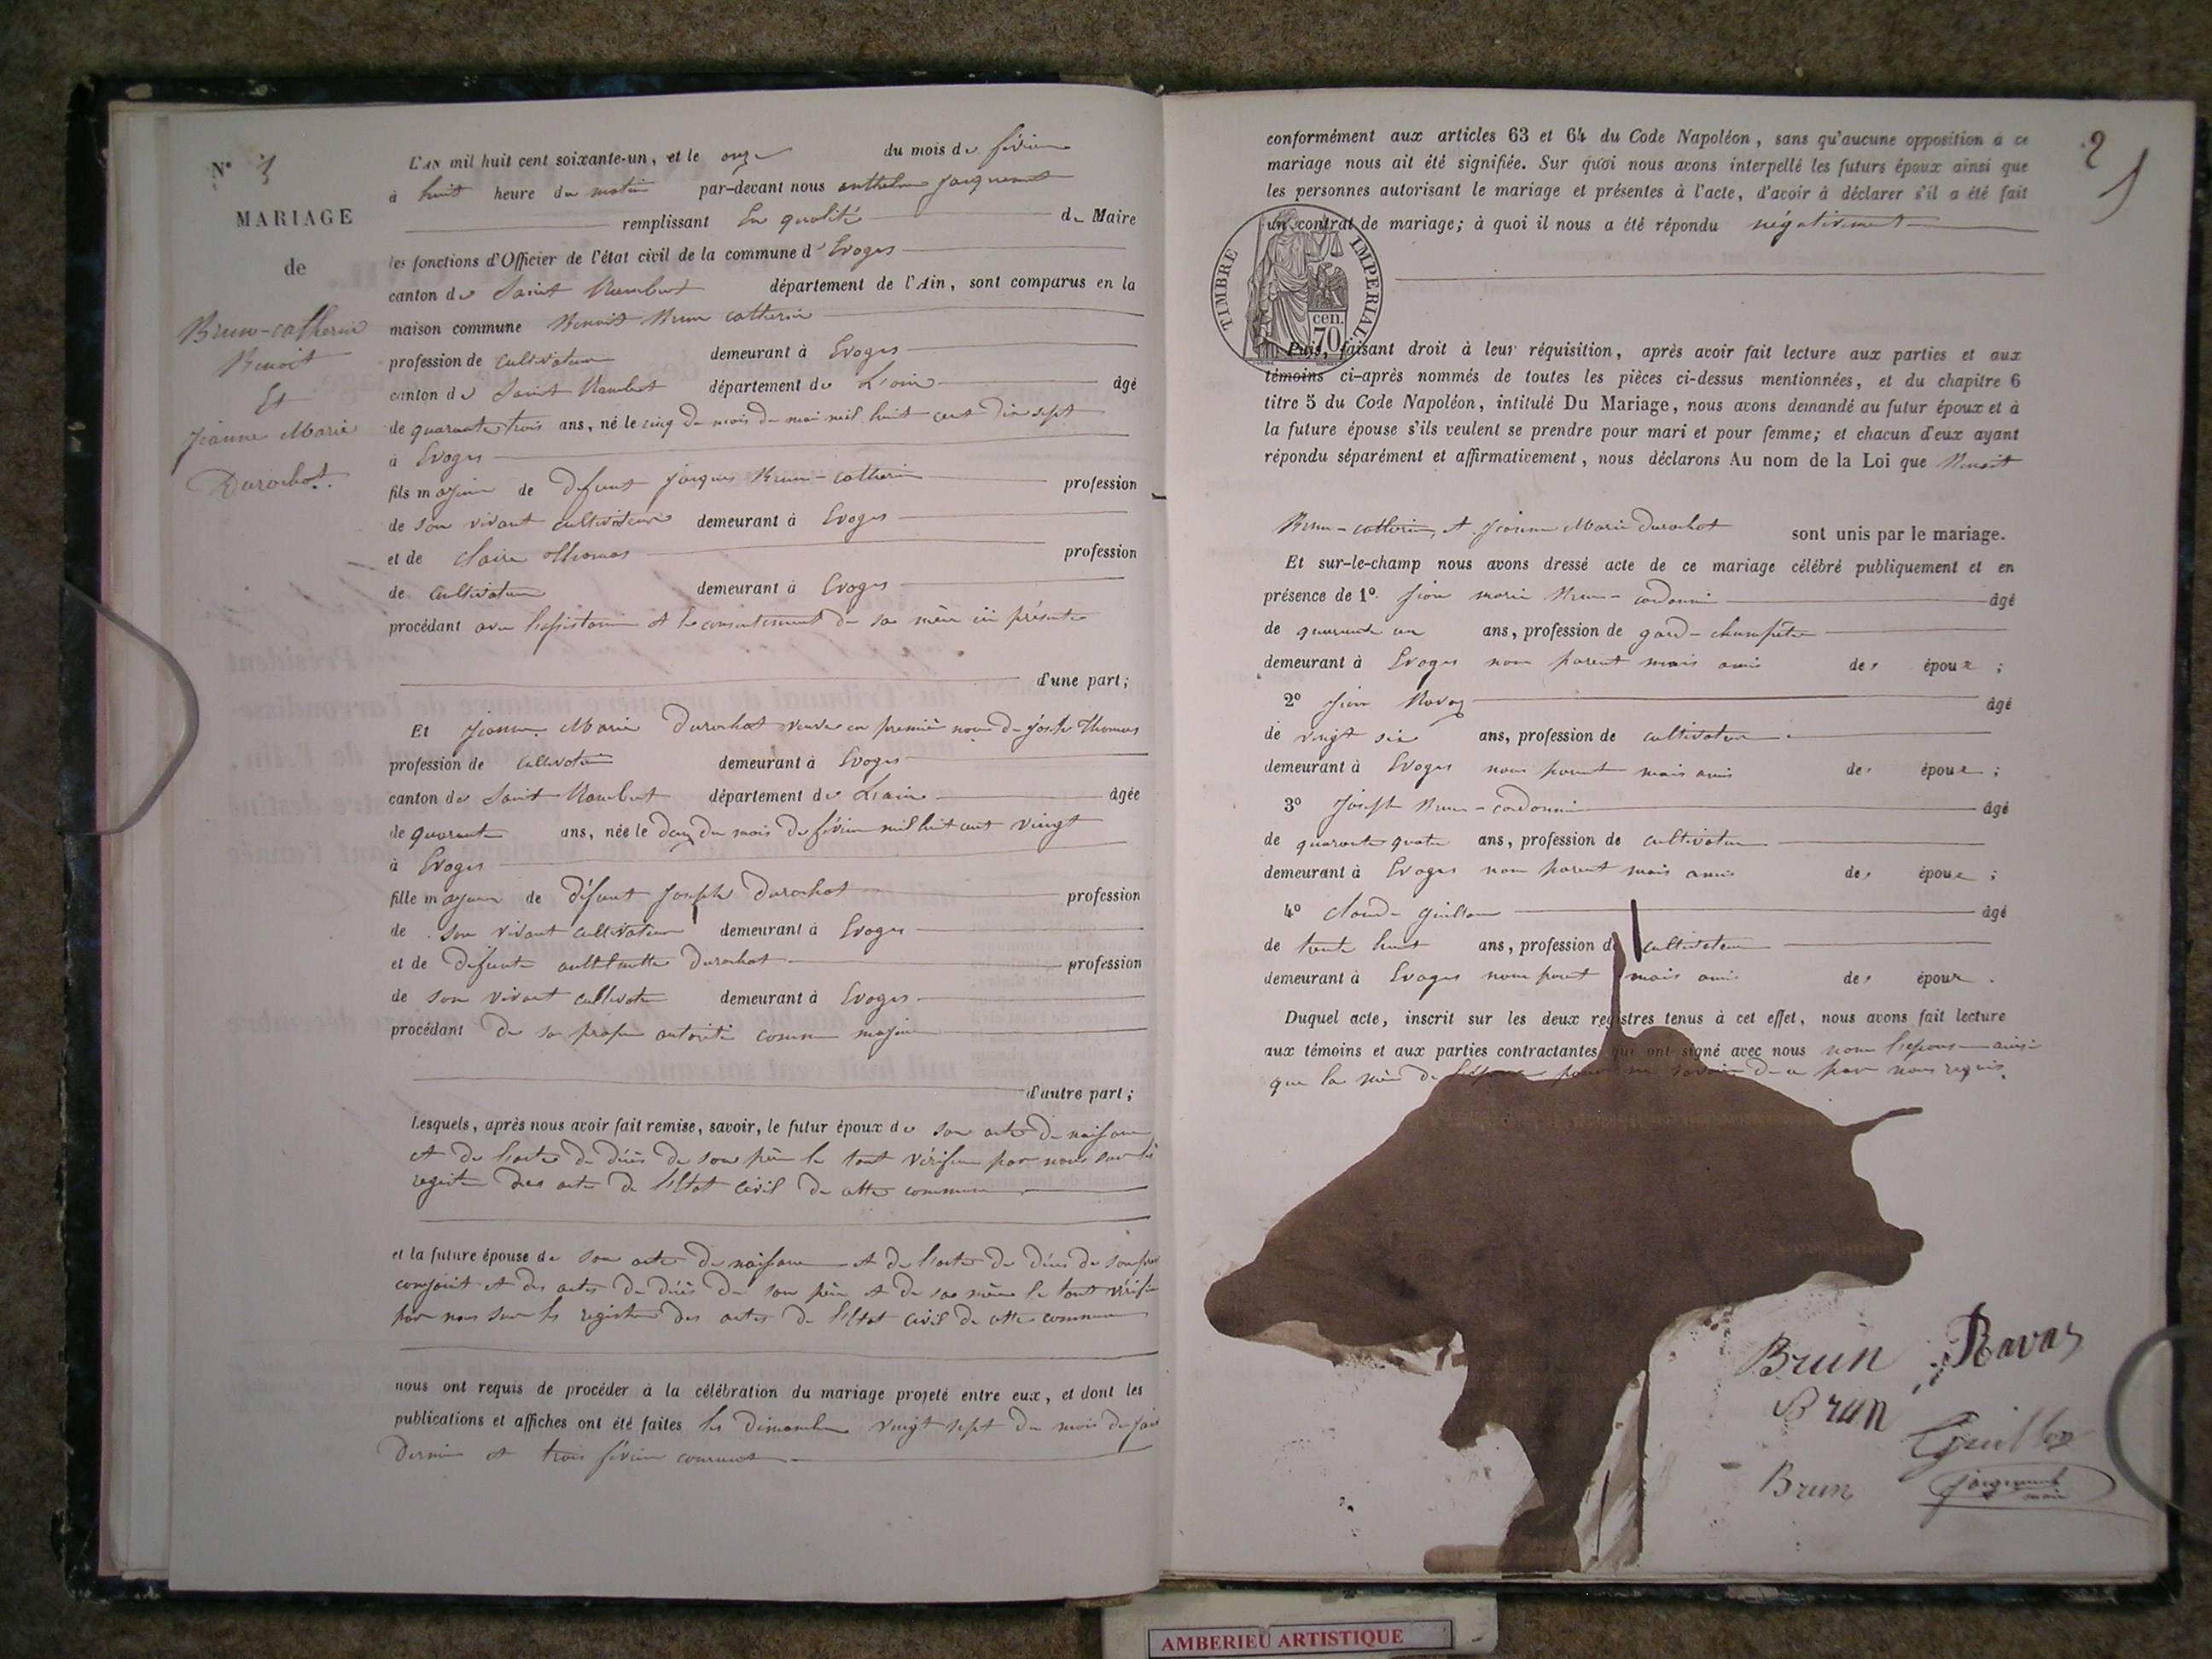 N° 1
MARIAGE
de
Brun-catherin
Benoit
Et
Jeanne Marie
Durochat.
L'AN mil huit cent soixante-un, et le onze du mois de février
à huit heure du matin par-devant nous anthelme Jacquemet
remplissant En qualité de Maire
les fonctions d'Officier de l'état civil de la commune d'Evoges
canton de Saint Rambert département de l'Ain, sont comparus en la
maison commune Benoit Brun catherin
profession de cultivateur demeurant à Evoges
canton de Saint Rambert département de L'ain âgé
de quarante trois ans, né le cinq du mois de mai mil huit cent dix sept
à Evoges
fils majeur de défunt Jacques Brun-catherin profession
de son vivant cultivateur demeurant à Evoges
et de Claire Thomas profession
de cultivateur demeurant à Evoges
procédant avec l'assistance et le consentement de sa mère ici présente
d'une part;
Et Jeanne Marie Durochat veuve en première noce de Joseph Thomas
profession de cultivatrice demeurant à Evoges
canton de Saint Rambert département de L'ain âgée
de quarante ans, née le douze du mois de février mil huit cent vingt
à Evoges
fille majeure de défunt Joseph Durochat profession
de son vivant cultivateur demeurant à Evoges
et de défunte anthelmette Durochat profession
de son vivant cultivatrice demeurant à Evoges
procédant de sa propre autorité comme majeure
d'autre part;
Lesquels, après nous avoir fait remise, savoir, le futur époux de son acte de naissance
et de l'acte de décès de son père le tout vérifié par nous sur les
registre des acte de l'Etat civil de cette commune
et la future épouse de son acte de naissance et de l'acte de décès de son
conjoint et des actes de décès de son père et de sa mère le tout vérifié
par nous sur les registre des actes de l'Etat civil de cette commune
nous ont requis de procéder à la célébration du mariage projeté entre eux, et dont les
publications et affiches ont été faites les dimanche vingt sept du mois de
dernier et trois février courant
2
conformément aux articles 63 et 64 du Code Napoléon, sans qu'aucune opposition à ce
mariage nous ait été signifiée. Sur quoi nous avons interpellé les futurs époux ainsi que
les personnes autorisant le mariage et présentes à l'acte, d'avoir à déclarer s'il a été fait
un contrat de mariage; à quoi il nous a été répondu négativement
TIMBRE IMPERIAL
cen.
70
Puis, faisant droit à leur réquisition, après avoir fait lecture aux parties et aux
témoins ci-après nommés de toutes les pièces ci-dessus mentionnées, et du chapitre 6
titre 5 du Code Napoléon, intitulé Du Mariage, nous avons demandé au futur époux et à
la future épouse s'ils veulent se prendre pour mari et pour femme; et chacun d'eux ayant
répondu séparément et affirmativement, nous déclarons Au nom de la Loi que Benoit
Brun-catherin et Jeanne Marie Durochat sont unis par le mariage.
Et sur-le-champ nous avons dressé acte de ce mariage célébré publiquement et en
présence de 1° Jean marie Brun-cordonnier âgé
de quarante un ans, profession de garde-champêtre
demeurant à Evoges non parent mais ami des époux;
2° Jean Ravaz âgé
de vingt six ans, profession de cultivateur
demeurant à Evoges non parent mais amis des époux;
3° Joseph Brun-cordonnier âgé
de quarante quatre ans, profession de cultivateur
demeurant à Evoges non parent mais amis des époux;
4° Claude Guillon âgé
de trente huit ans, profession de cultivateur
demeurant à Evoges non parent mais amis des époux.
Duquel acte, inscrit sur les deux registres tenus à cet effet, nous avons fait lecture
aux témoins et aux parties contractantes qui ont signé avec nous non l'épouse ainsi
que la mère de l'époux pour ne savoir de ce par nous requis.
Brun Ravaz
Brun
Guillon
Brun
Jacquemet
maire
AMBERIEU ARTISTIQUE